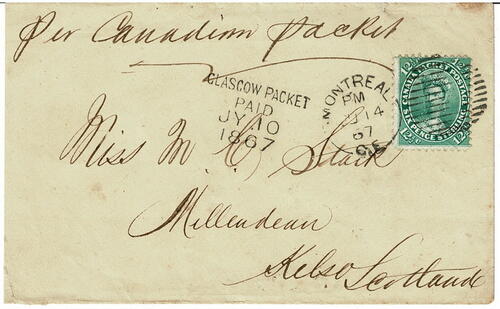 Per Canadian Packet
GLASCOW PACKET
PAID
JY 10
1867
MONTREAL
PM
14
67
C.E.
12½c
CANADA PACKET POSTAGE
SIX PENCE STERLING
12½c
Miss M C Stark
Kelso Scotland